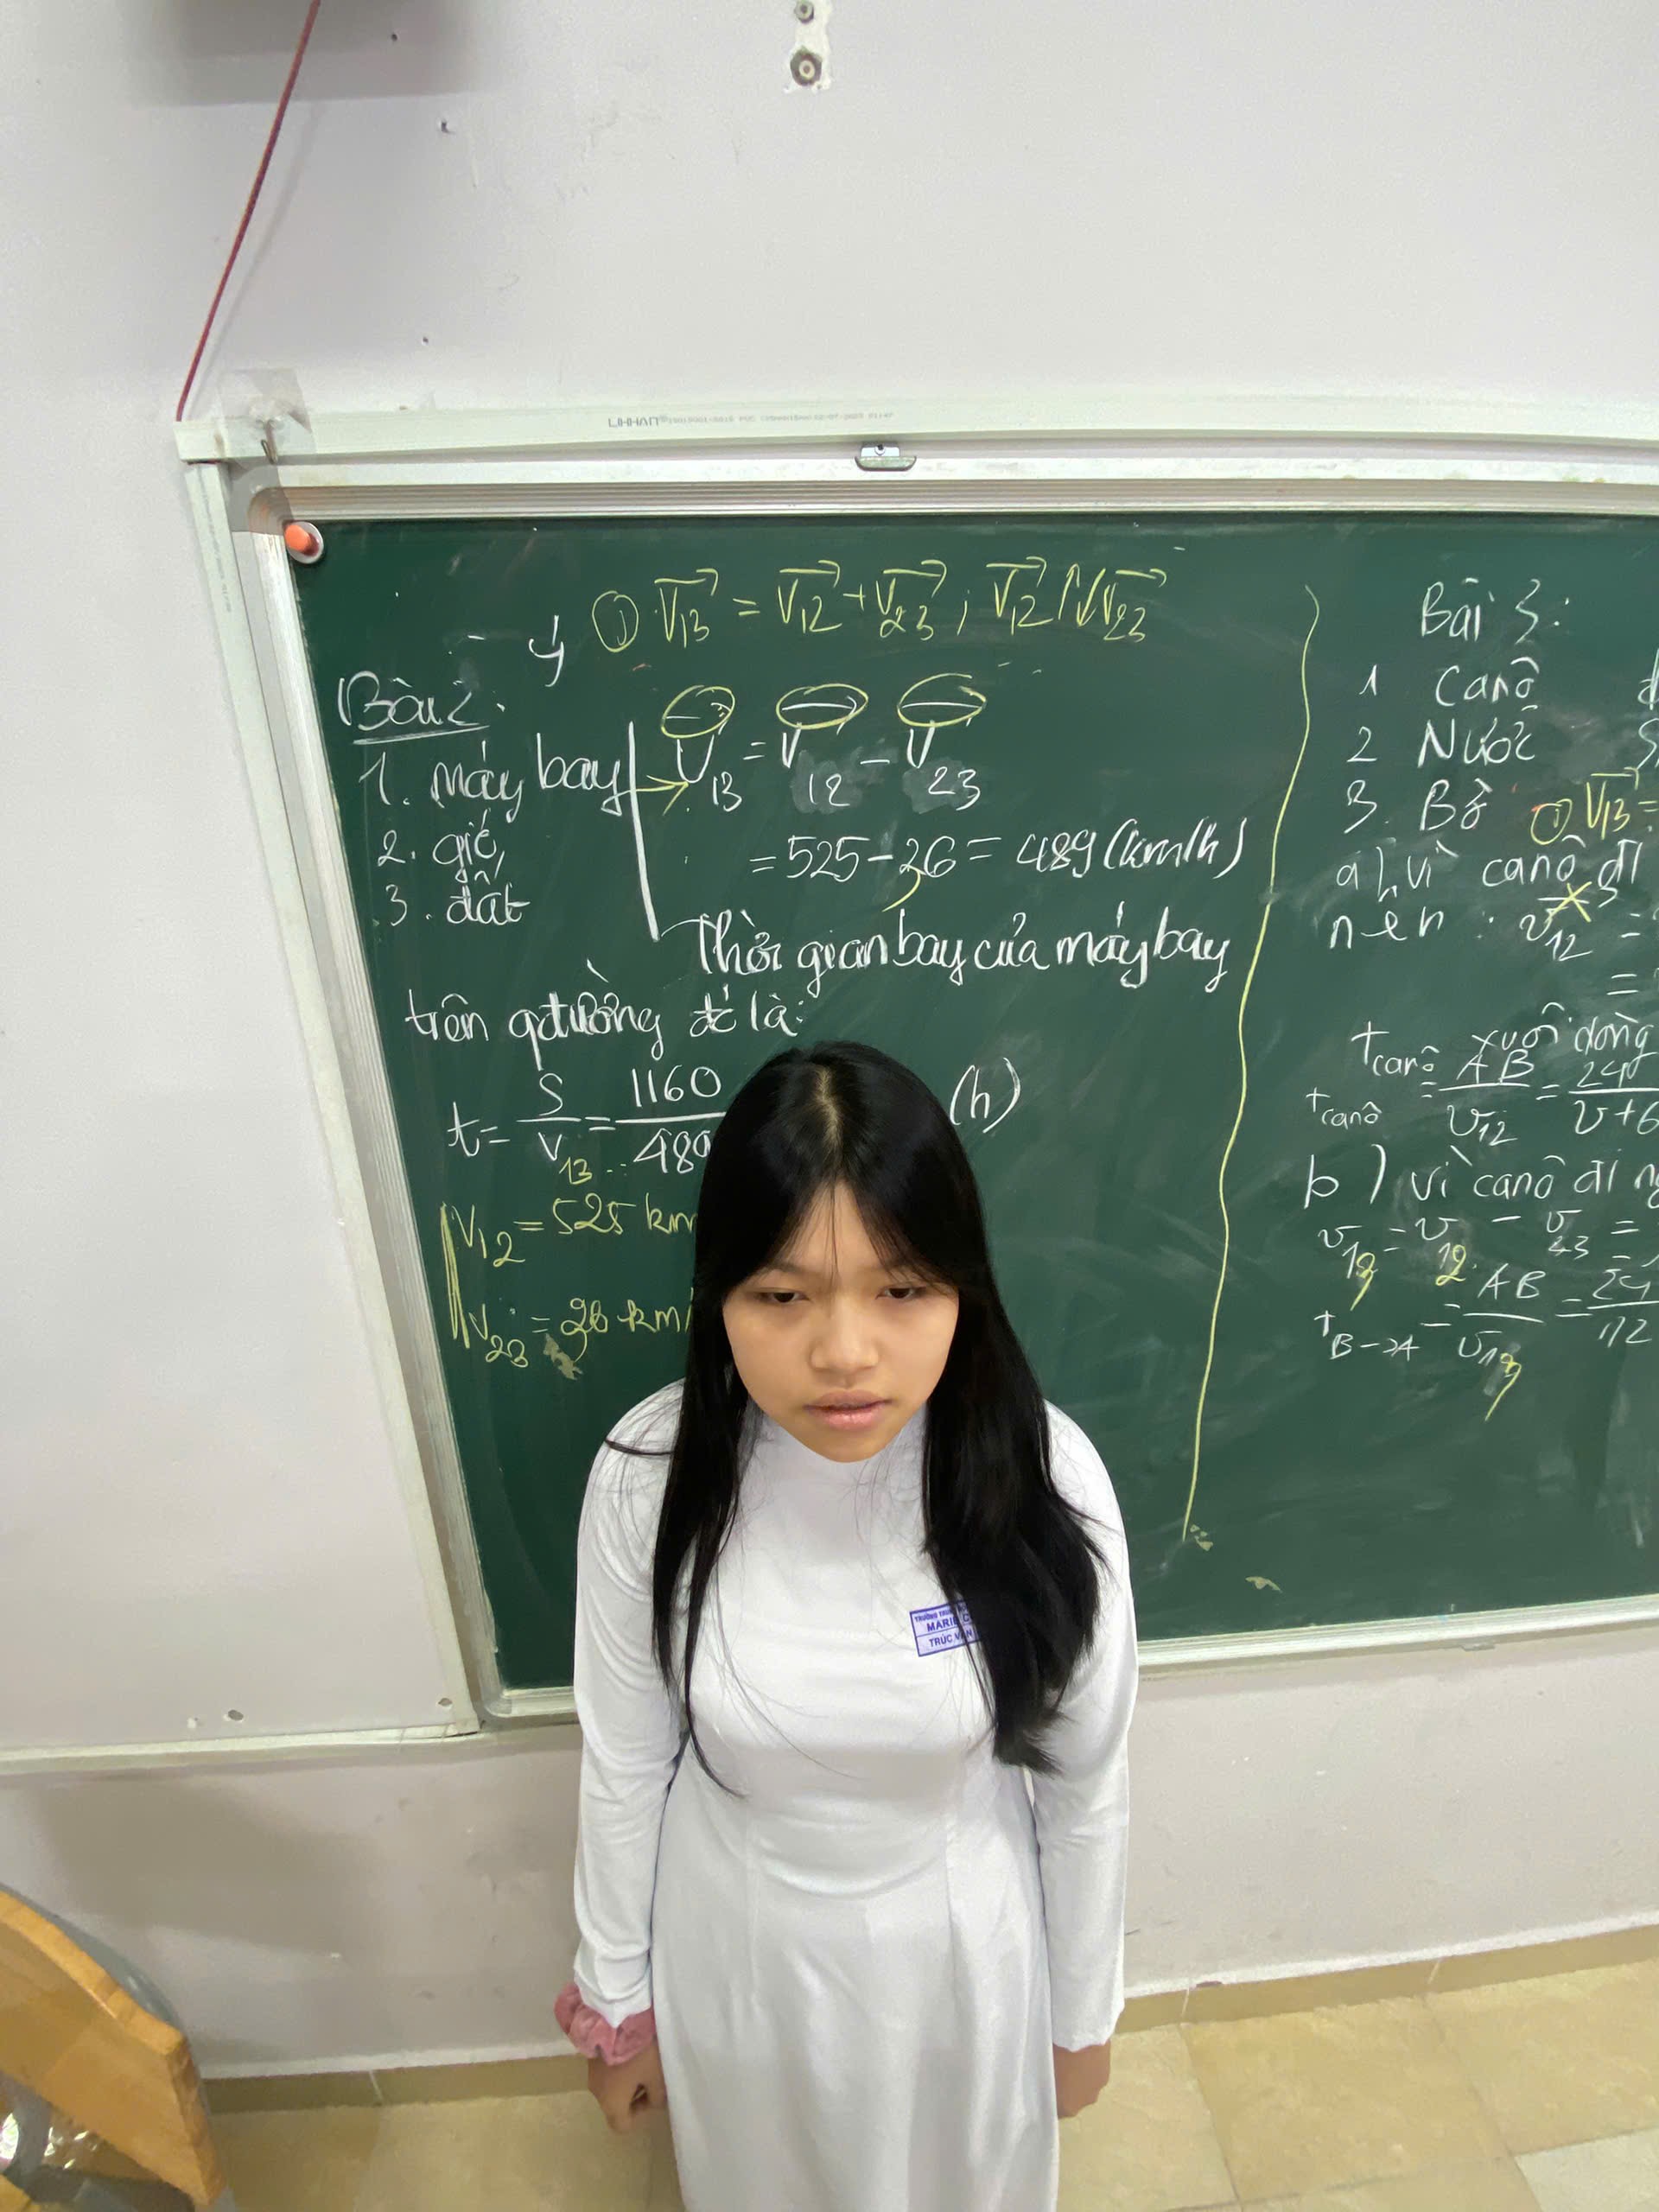 ý ① V₁₃ = V₁₂ + V₂₃ ; V₁₂ ↑↓ V₂₃
Bài 2:
1. máy bay
2. gió,
3. đất
V₁₃ = V₁₂ - V₂₃
= 525 - 36 = 489 (km/h)
Thời gian bay của máy bay
trên qđường đó là:
t = S/V₁₃ = 1160/489 (h)
V₁₂ = 525 km
V₂₃ = 36 km/
Bài 3:
1 Canô
2 Nước
3. Bờ ① V₁₃ =
a), vì canô đi
nên : v₁₂ =
=
xuôi dòng
t canô
t canô = AB/v₁₂ = 240/v+6
b) vì canô đi
v₁₃ = v₁₂ - v₂₃ =
t B→A = AB/v₁₃ = 24/112
TRƯỜNG TRUNG
MARIE C
TRÚC V N